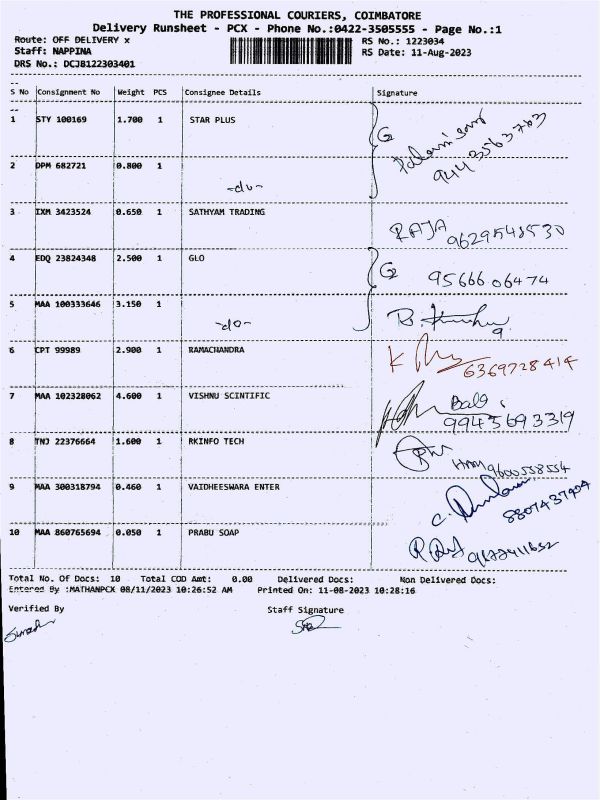 THE PROFESSIONAL COURIERS, COIMBATORE
Delivery Runsheet - PCX - Phone No.:0422-3505555 - Page No.:1
Route: OFF DELIVERY x RS No.: 1223034
Staff: NAPPINA RS Date: 11-Aug-2023
DRS No.: DCJB122303401
S No Consignment No Weight PCS Consignee Details Signature
1 STY 100169 1.700 1 STAR PLUS
9443563763
2 DPM 682721 0.800 1 -do-
3 IXM 3423524 0.650 1 SATHYAM TRADING RAJA
4 EDQ 23824348 2.500 1 GLO 9566606474
5 MAA 100333646 3.150 1 -do-
6 CPT 99989 2.900 1 RAMACHANDRA 6369728414
7 MAA 102328062 4.600 1 VISHNU SCINTIFIC
8 TNJ 22376664 1.600 1 RKINFO TECH 9600558554
9 MAA 300318794 0.460 1 VAIDHEESWARA ENTER
10 MAA 860765694 0.050 1 PRABU SOAP
Total No. Of Docs: 10 Total COD Amt: 0.00 Delivered Docs: Non Delivered Docs:
Entered By :MATHANPCX 08/11/2023 10:26:52 AM Printed On: 11-08-2023 10:28:16
Verified By Staff Signature